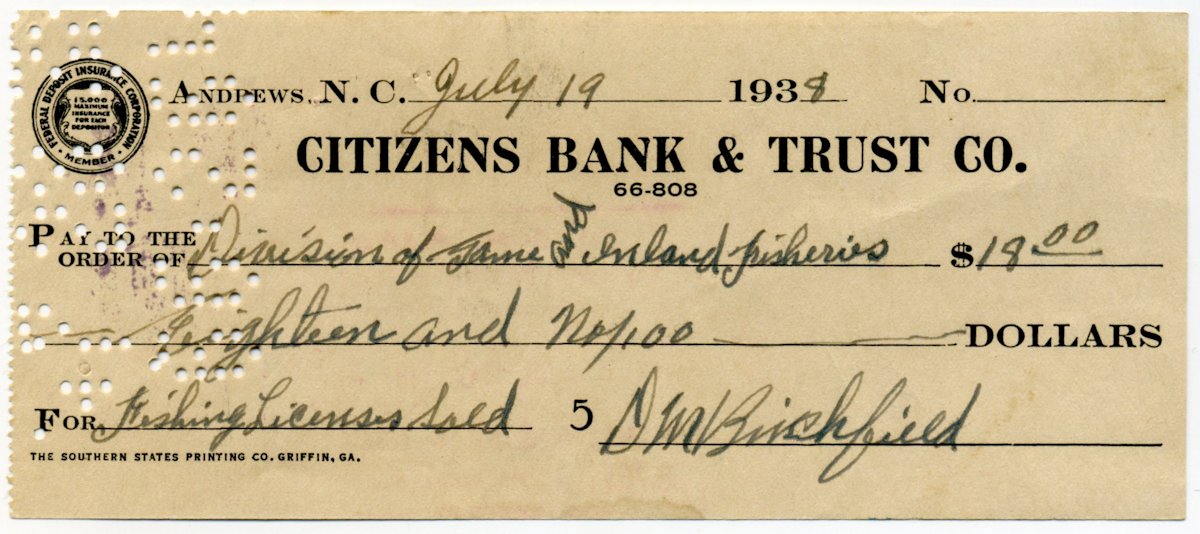 FEDERAL DEPOSIT INSURANCE CORPORATION
$5,000
MAXIMUM
INSURANCE
FOR EACH
DEPOSITOR
MEMBER
ANDREWS, N. C. July 19 1938 No.
CITIZENS BANK & TRUST CO.
66-808
PAY TO THE
ORDER OF Division of Game and Inland Fisheries $ 18 00
Eighteen and No/00 DOLLARS
FOR Fishing Licenses Sold 5 D M Birchfield
THE SOUTHERN STATES PRINTING CO. GRIFFIN, GA.